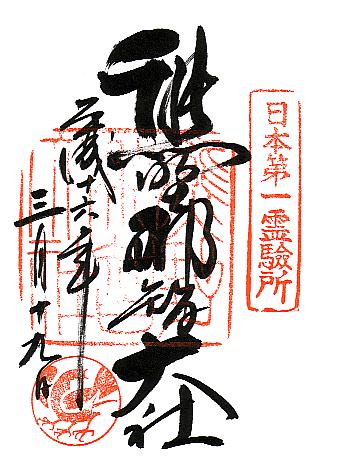 日本第一霊験所
熊野那智大社
平成十六年
三月十九日